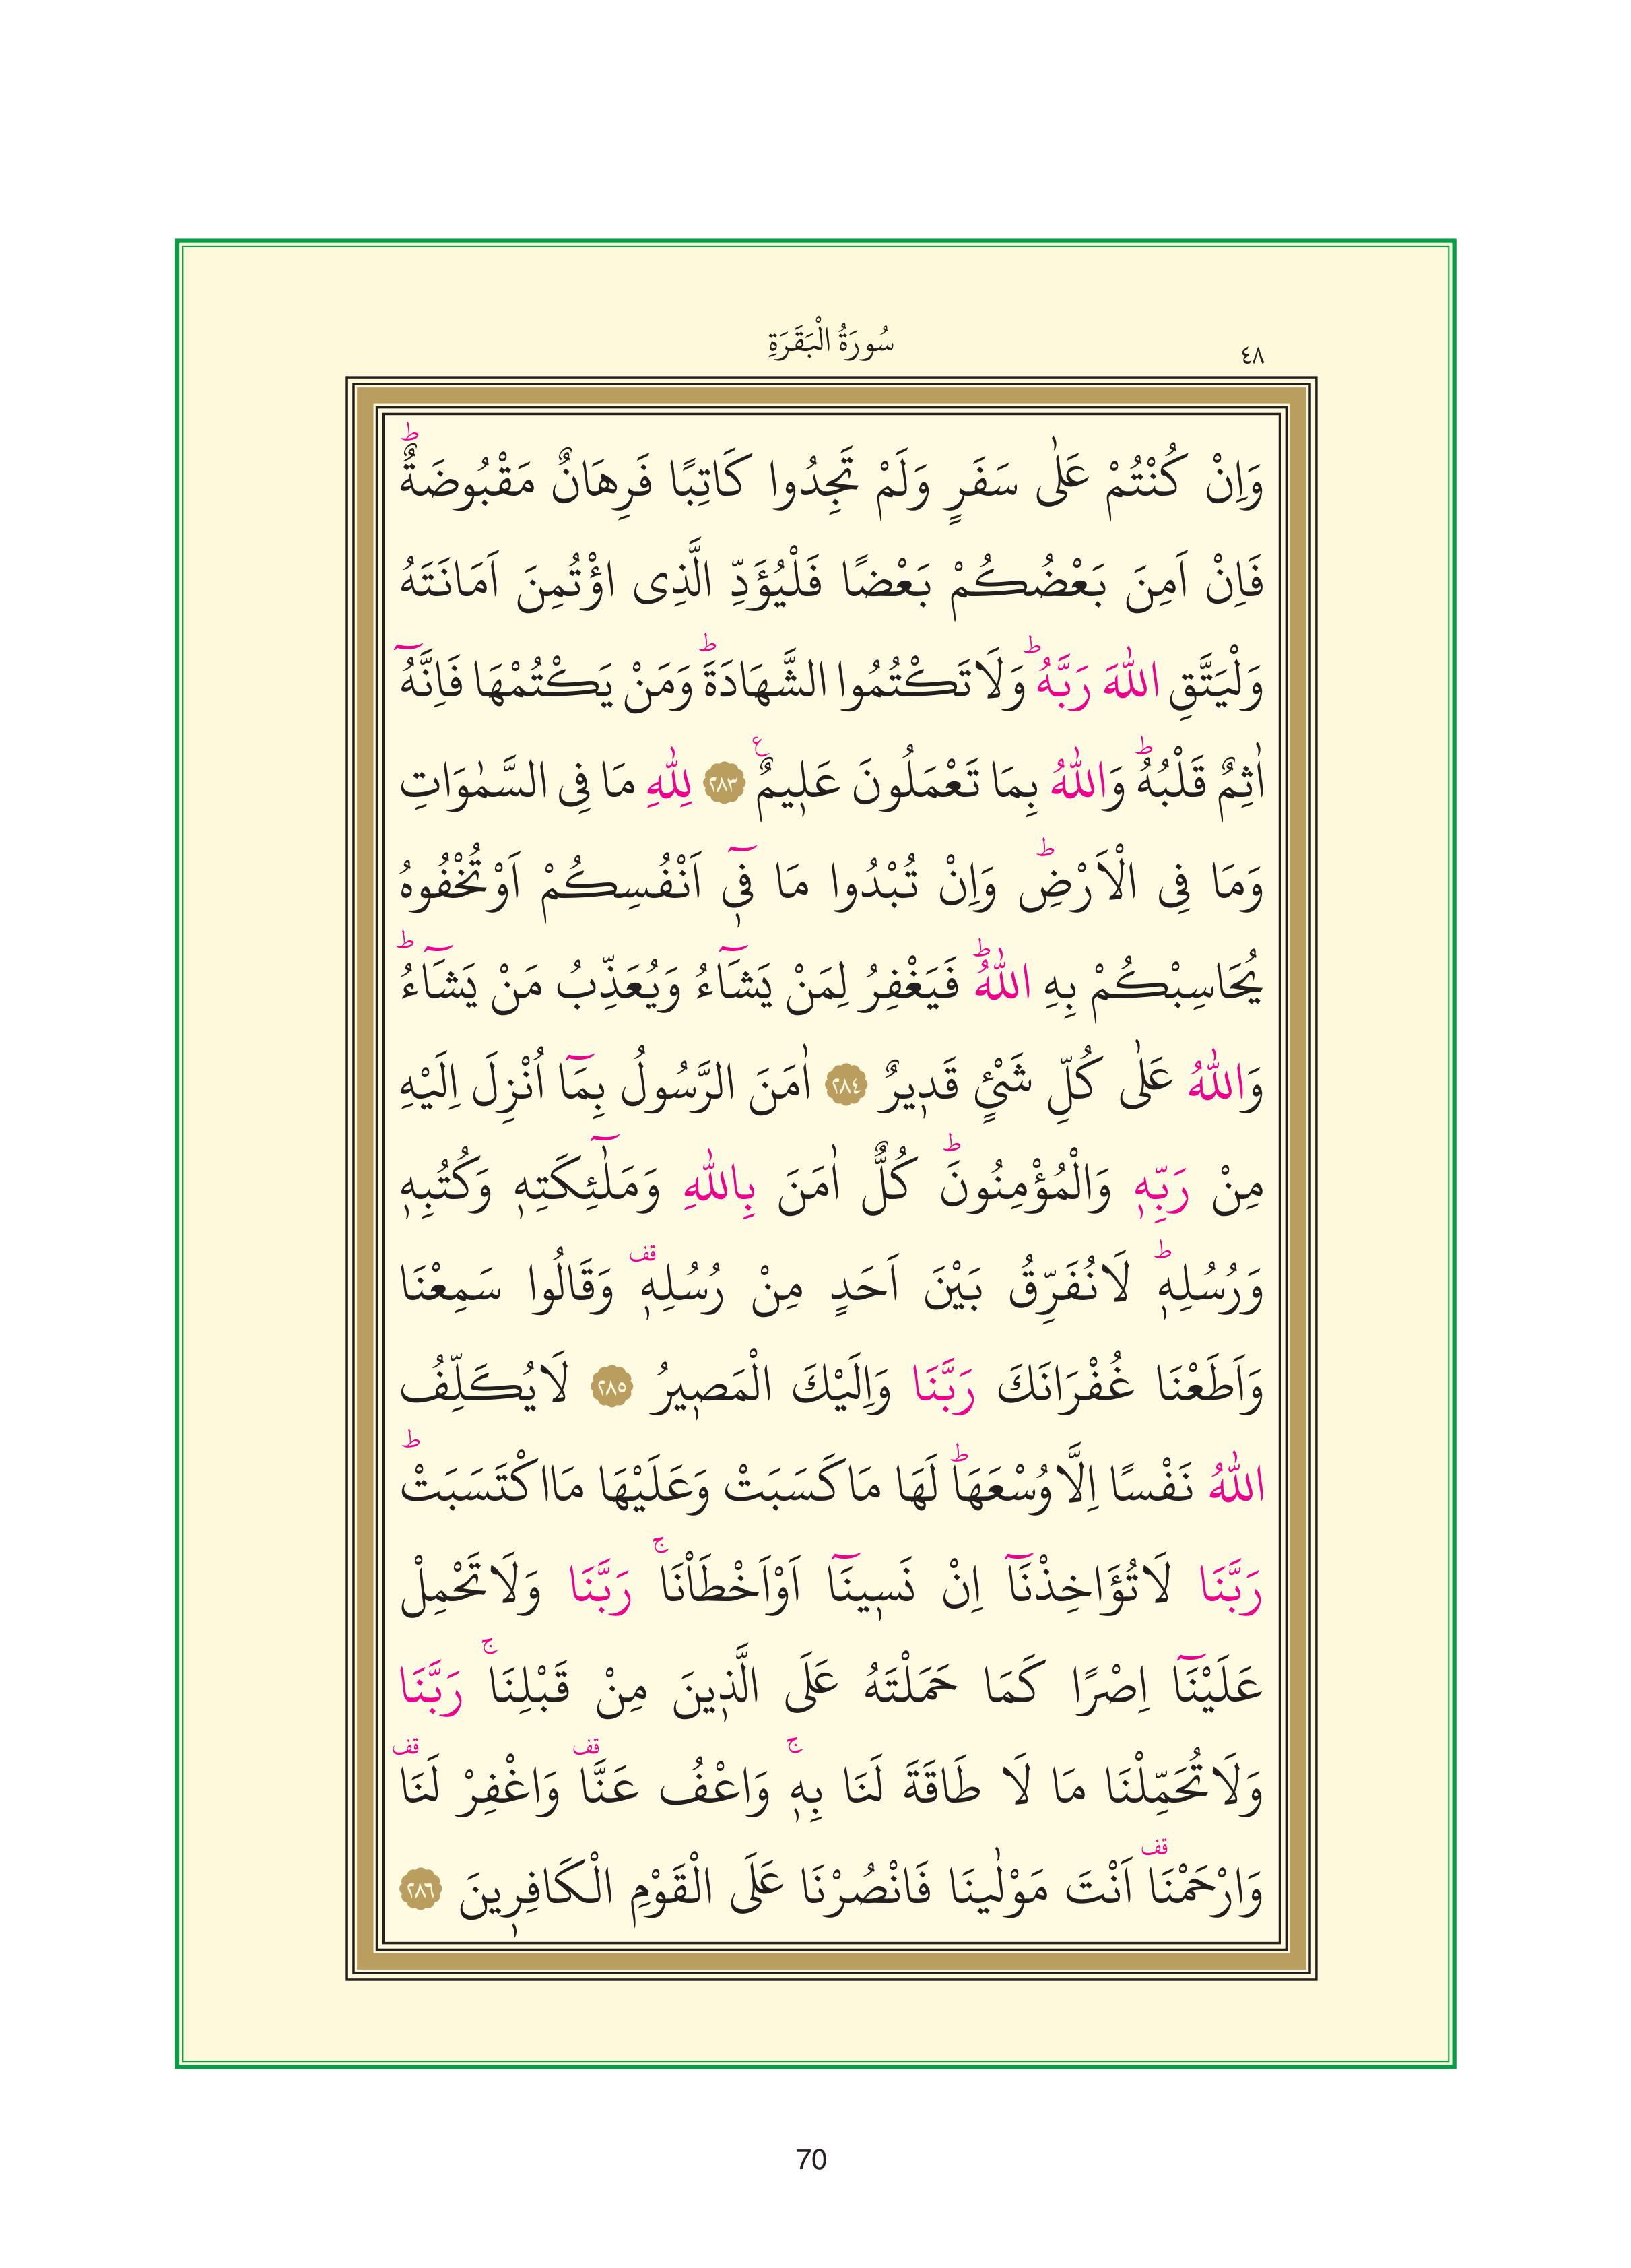 ٤٨ سُورَةُ الْبَقَرَةِ
وَاِنْ كُنْتُمْ عَلٰى سَفَرٍ وَلَمْ تَجِدُوا كَاتِبًا فَرِهَانٌ مَقْبُوضَةٌۜ
فَاِنْ اَمِنَ بَعْضُكُمْ بَعْضًا فَلْيُؤَدِّ الَّذِى اؤْتُمِنَ اَمَانَتَهُ
وَلْيَتَّقِ اللّٰهَ رَبَّهُۜ وَلَا تَكْتُمُوا الشَّهَادَةَۜ وَمَنْ يَكْتُمْهَا فَاِنَّهُٓ
اٰثِمٌ قَلْبُهُۜ وَاللّٰهُ بِمَا تَعْمَلُونَ عَلٖيمٌࣖ ﴿٢٨٣﴾ لِلّٰهِ مَا فِى السَّمٰوَاتِ
وَمَا فِى الْاَرْضِۜ وَاِنْ تُبْدُوا مَا فٖٓى اَنْفُسِكُمْ اَوْ تُخْفُوهُ
يُحَاسِبْكُمْ بِهِ اللّٰهُۜ فَيَغْفِرُ لِمَنْ يَشَٓاءُ وَيُعَذِّبُ مَنْ يَشَٓاءُۜ
وَاللّٰهُ عَلٰى كُلِّ شَىْءٍ قَدٖيرٌ ﴿٢٨٤﴾ اٰمَنَ الرَّسُولُ بِمَٓا اُنْزِلَ اِلَيْهِ
مِنْ رَبِّهٖ وَالْمُؤْمِنُونَۜ كُلٌّ اٰمَنَ بِاللّٰهِ وَمَلٰٓئِكَتِهٖ وَكُتُبِهٖ
وَرُسُلِهٖۜ لَا نُفَرِّقُ بَيْنَ اَحَدٍ مِنْ رُسُلِهٖ۠ وَقَالُوا سَمِعْنَا
وَاَطَعْنَا غُفْرَانَكَ رَبَّنَا وَاِلَيْكَ الْمَصٖيرُ ﴿٢٨٥﴾ لَا يُكَلِّفُ
اللّٰهُ نَفْسًا اِلَّا وُسْعَهَاۜ لَهَا مَا كَسَبَتْ وَعَلَيْهَا مَا اكْتَسَبَتْۜ
رَبَّنَا لَا تُؤَاخِذْنَٓا اِنْ نَسٖينَٓا اَوْ اَخْطَاْنَاۚ رَبَّنَا وَلَا تَحْمِلْ
عَلَيْنَٓا اِصْرًا كَمَا حَمَلْتَهُ عَلَى الَّذٖينَ مِنْ قَبْلِنَاۚ رَبَّنَا
وَلَا تُحَمِّلْنَا مَا لَا طَاقَةَ لَنَا بِهٖۚ وَاعْفُ عَنَّا۠ وَاغْفِرْ لَنَا۠
وَارْحَمْنَا۠ اَنْتَ مَوْلٰينَا فَانْصُرْنَا عَلَى الْقَوْمِ الْكَافِرٖينَ ﴿٢٨٦﴾
70